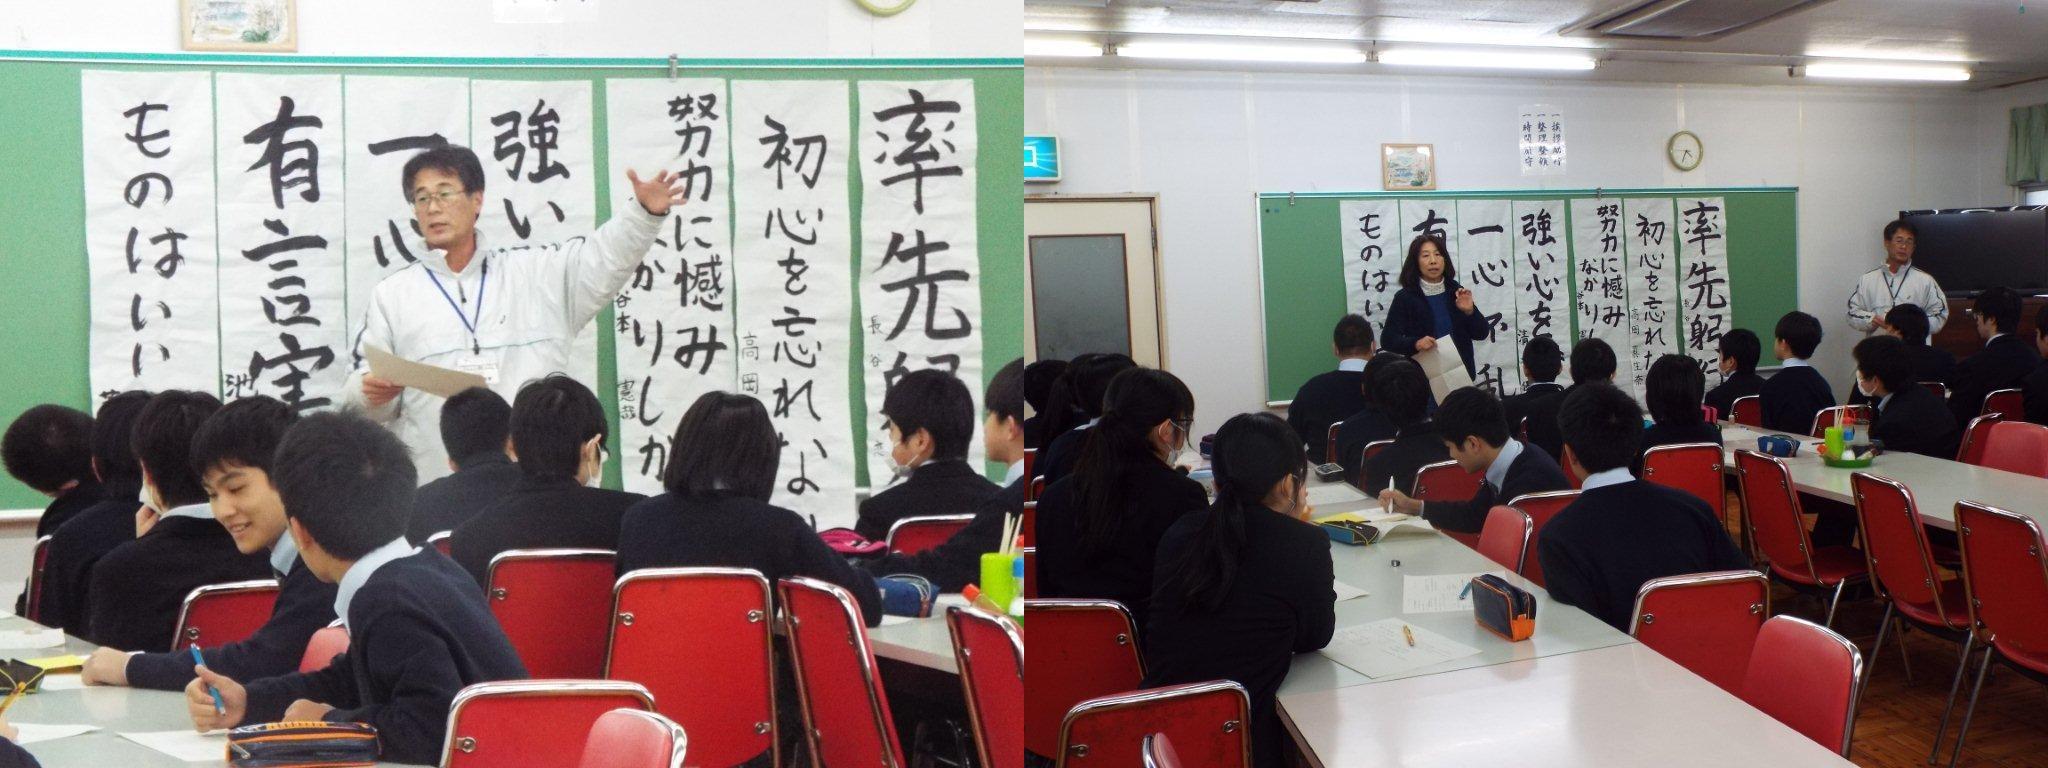 率先躬
長谷
初心を忘れな
高岡
努力に憾み
なかりしか
谷本 憲哉
強い
一心
有言実
池
ものはいい
一挨拶励行
一整理整頓
一時間厳守
率先躬行
初心を忘れな
高岡
努力に憾み
なかりし
強い心を
清
一心不乱
有
ものはい